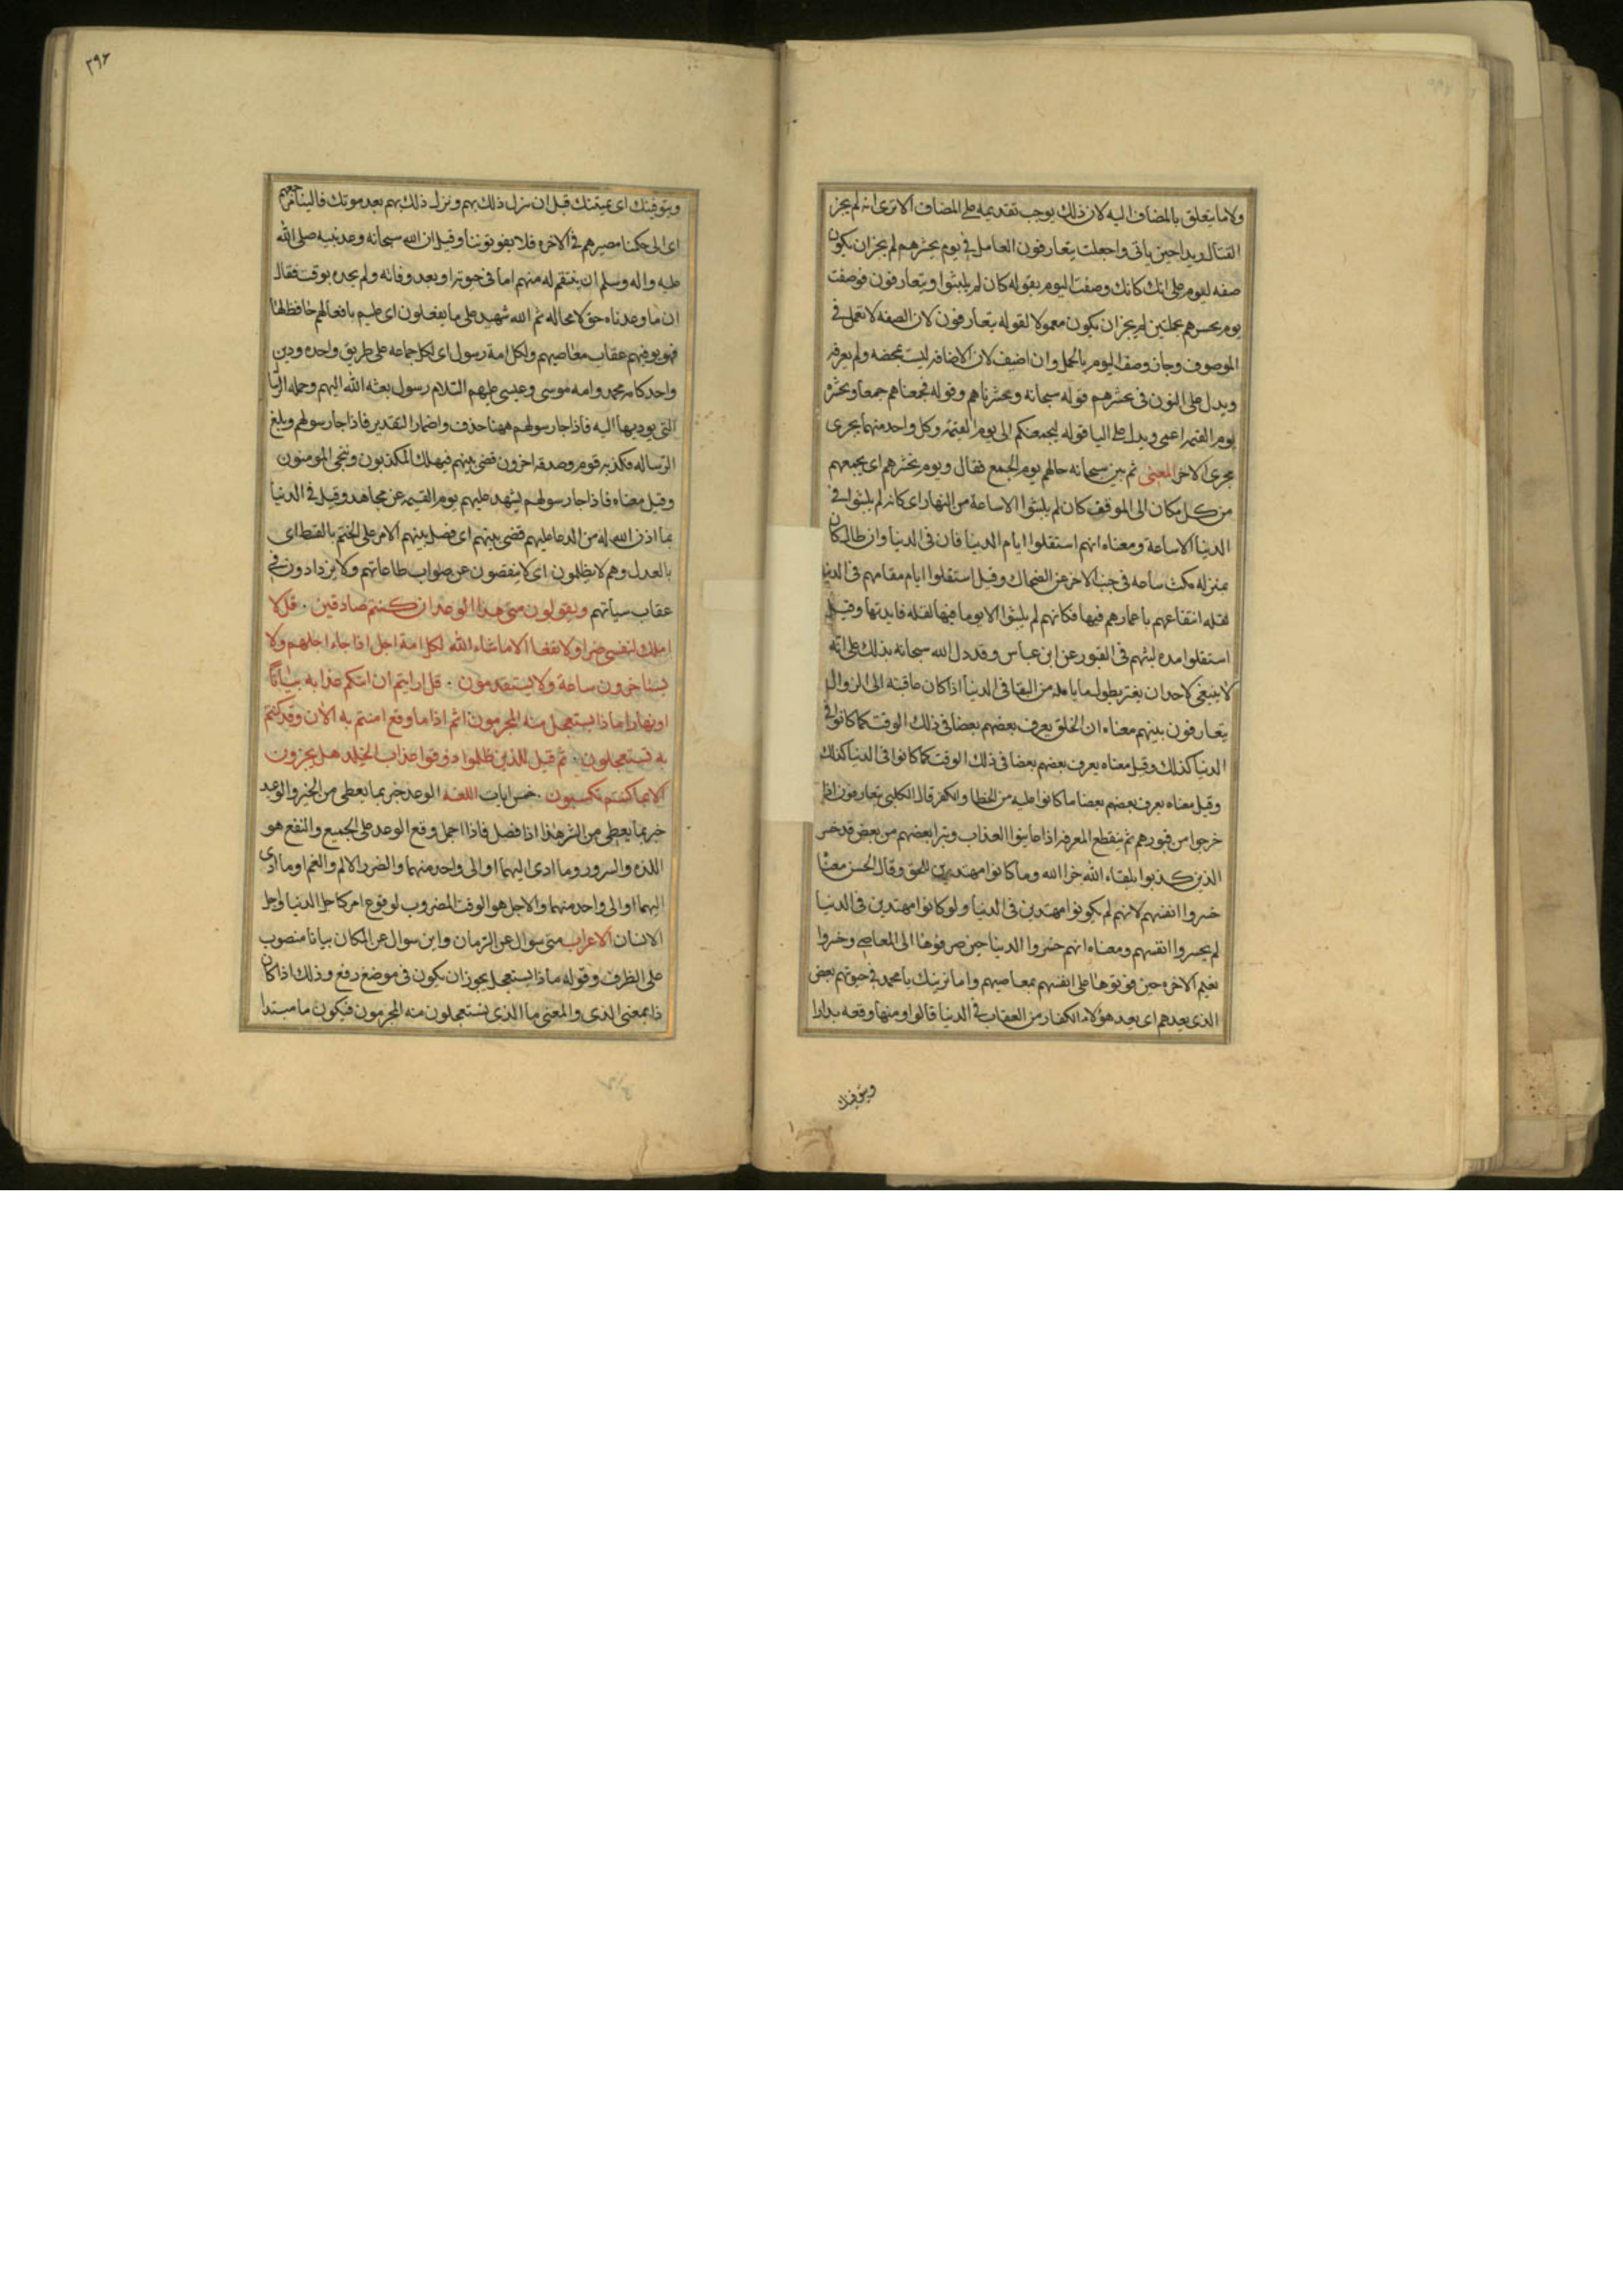 ولا ما يتعلق بالمضاف اليه لان ذلك يوجب تقديمه على المضاف الا ترى انه لم يجز
القتال زيدا حين ياتى واجعلت يتعارفون العامل فى يوم يحشرهم لم يجز ان يكون
صفه ليوم على انك كانك وصفت اليوم بقوله كان لم يلبثوا ويتعارفون فوصفت
يوم يحسرهم بجملتين لم يجز ان يكون معمولا لقوله يتعارفون لان الصفه لا تعمل فى
الموصوف وجاز وصف اليوم بالجمل وان اضيف لان الاضافه ليست بمحضه ولم يعرفه
ويدل على النون فى نحشرهم قوله سبحانه وحشرناهم وقوله فجمعناهم جمعا ونحشره
يوم القيمه اعمى ويدل على اليا قوله ليجمعنكم الى يوم القيمة وكل واحد منهما يجرى
مجرى الاخر المعنى ثم بين سبحانه حالهم يوم الجمع فقال ويوم نحشرهم اى يجمعهم
من كل مكان الى الموقف كان لم يلبثوا الا ساعة من النهار اى كانه لم يلبثوا فى
الدنيا الا ساعة ومعناه انهم استقلوا ايام الدنيا فان فى الدنيا وان طال كان
بمنزله مكث ساعه فى جنب الاخر عن الضحاك وقيل استقلوا ايام مقامهم فى الدنيا
لقله انتفاعهم باعمارهم فيها فكانهم لم يلبثوا الا يوما فيها لقله فايدتها وقيل
استقلوا مده لبثهم فى القبور عن ابن عباس وقد دل الله سبحانه بذلك على انه
لا ينبغى لاحد ان يغتر بطول ما يامله من البقا فى الدنيا اذا كان عاقبته الى الزوال
يتعارفون بينهم معناه ان الخلق يعرف بعضهم بعضا فى ذلك الوقت كما كانوا فى
الدنيا كذلك وقيل معناه يعرف بعضهم بعضا فى ذلك الوقت كما كانوا فى الدنيا كذلك
وقيل معناه يعرف بعضهم بعضا ما كانوا عليه من الخطا والكفر قال الكلبى يتعارفون اذا
خرجوا من قبورهم ثم ينقطع المعرفه اذا عاينوا العذاب ويتبرا بعضهم من بعض قد خسر
الذين كذبوا بلقاء الله جزا الله وما كانوا مهتدين للحق وقال الحسن معناه
خسروا انفسهم لانهم لم يكونوا مهتدين فى الدنيا ولو كانوا مهتدين فى الدنيا
لم يخسروا انفسهم ومعناه انهم خسروا الدنيا حين صرفوها الى المعاصى وخسروا
نعيم الاخره حين فوتوها على انفسهم بمعاصيهم واما نرينك يا محمد فى حيوتهم بعض
الذى نعدهم اى نعد هؤلاء الكفار من العقاب فى الدنيا قالوا ومنها وقعه بدر او
ونتوفينك
٢٩٦
ونتوفينك اى نميتنك قبل ان ننزل ذلك بهم وننزل ذلك بهم بعد موتك فالينا مرجعهم
اى الى حكمنا مصيرهم فى الاخره فلا يفوتوننا وقيل ان الله سبحانه وعد نبيه صلى الله
عليه واله وسلم ان ينتقم له منهم اما فى حيوته او بعد وفاته ولم يحده بوقت فقال
ان ما وعدناه حق لا محاله ثم الله شهيد على ما يفعلون اى عليم بافعالهم حافظ لها
فهو يوفيهم عقاب معاصيهم ولكل امة رسول اى لكل جماعه على طريق واحده ودين
واحد كامه محمد وامه موسى وعيسى عليهم السلام رسول بعثه الله اليهم وحمله الرسا
التى يوديها اليه فاذا جا رسولهم ههنا حذف واضمار التقدير فاذا جا رسولهم وبلغ
الرساله فكذبه قوم وصدقه اخرون قضى بينهم فيهلك المكذبون وينجى المومنون
وقيل معناه فاذا جا رسولهم ليشهد عليهم يوم القيمه عن مجاهد وقيل فى الدنيا
بما اذن الله له من الدعا عليهم قضى بينهم اى فصل بينهم الامر على الختم بالقسط اى
بالعدل وهم لا يظلمون اى لا ينقصون عن ثواب طاعاتهم ولا يزدادون فى
عقاب سياتهم ويقولون متى هذا الوعد ان كنتم صادقين . قل لا
املك لنفسى ضرا ولا نفعا الا ما شاء الله لكل امة اجل اذا جاء اجلهم ولا
يستاخرون ساعة ولا يستقدمون . قل ارايتم ان اتيكم عذابه بياتا
او نهارا ماذا يستعجل منه المجرمون اثم اذا ما وقع امنتم به الان وقد كنتم
به تستعجلون . ثم قيل للذين ظلموا ذوقوا عذاب الخلد هل تجزون
الا بما كنتم تكسبون . خمس ايات اللغه الوعد خبر بما يعطى من الخير والوعيد
خبر بما يعطى من الشر هذا اذا فصل فاذا اجمل وقع الوعد على الجميع والنفع هو
اللذه والسرور وما ادى اليهما او الى واحد منهما والضرر الالم والغم او ما ادى
اليهما او الى واحد منهما والاجل هو الوقت المضروب لوقوع امر كاجل الدنيا واجل
الانسان الاعراب متى سوال عن الزمان واين سوال عن المكان بياتا منصوب
على الظرف وقوله ماذا يستعجل يجوز ان يكون فى موضع رفع وذلك اذا كان
ذا بمعنى الذى والمعنى ما الذى يستعجلون منه المجرمون فيكون ما مبتدا